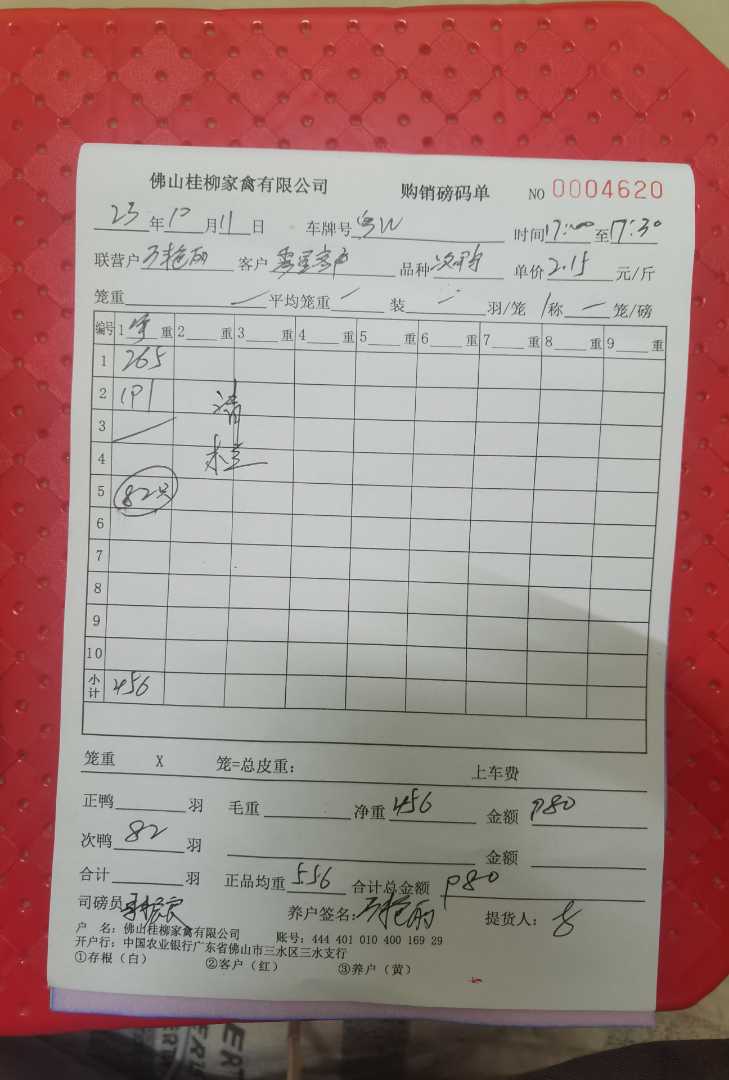 佛山桂柳家禽有限公司 购销磅码单 NO 0004620
23 年 12 月 11 日 车牌号 粤W 时间 17:00 至 17:30
联营户 客户 品种 次鸭 单价 2.15 元/斤
笼重 平均笼重 装 羽/笼 1称 笼/磅
编号 1 重 2 重 3 重 4 重 5 重 6 重 7 重 8 重 9 重
1 265
2 191
清
3
4 栏
5 82只
6
7
8
9
10
小计 456
笼重 X 笼=总皮重: 上车费
正鸭 羽 毛重 净重 456 金额 980
次鸭 82 羽 金额
合计 羽 正品均重 5.56 合计总金额 980
司磅员 养户签名: 提货人:
户 名: 佛山桂柳家禽有限公司 账号: 444 401 010 400 169 29
开户行: 中国农业银行广东省佛山市三水区三水支行
①存根（白） ②客户（红） ③养户（黄）